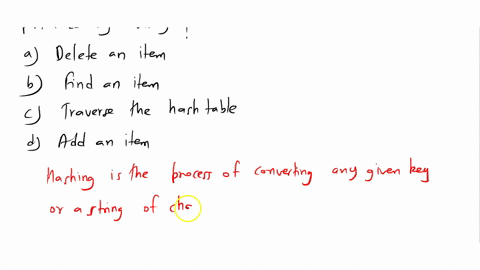 a) Delete an item
b) Find an item
c) Traverse the hash table
d) Add an item
Hashing is the process of converting any given key
or a string of cha